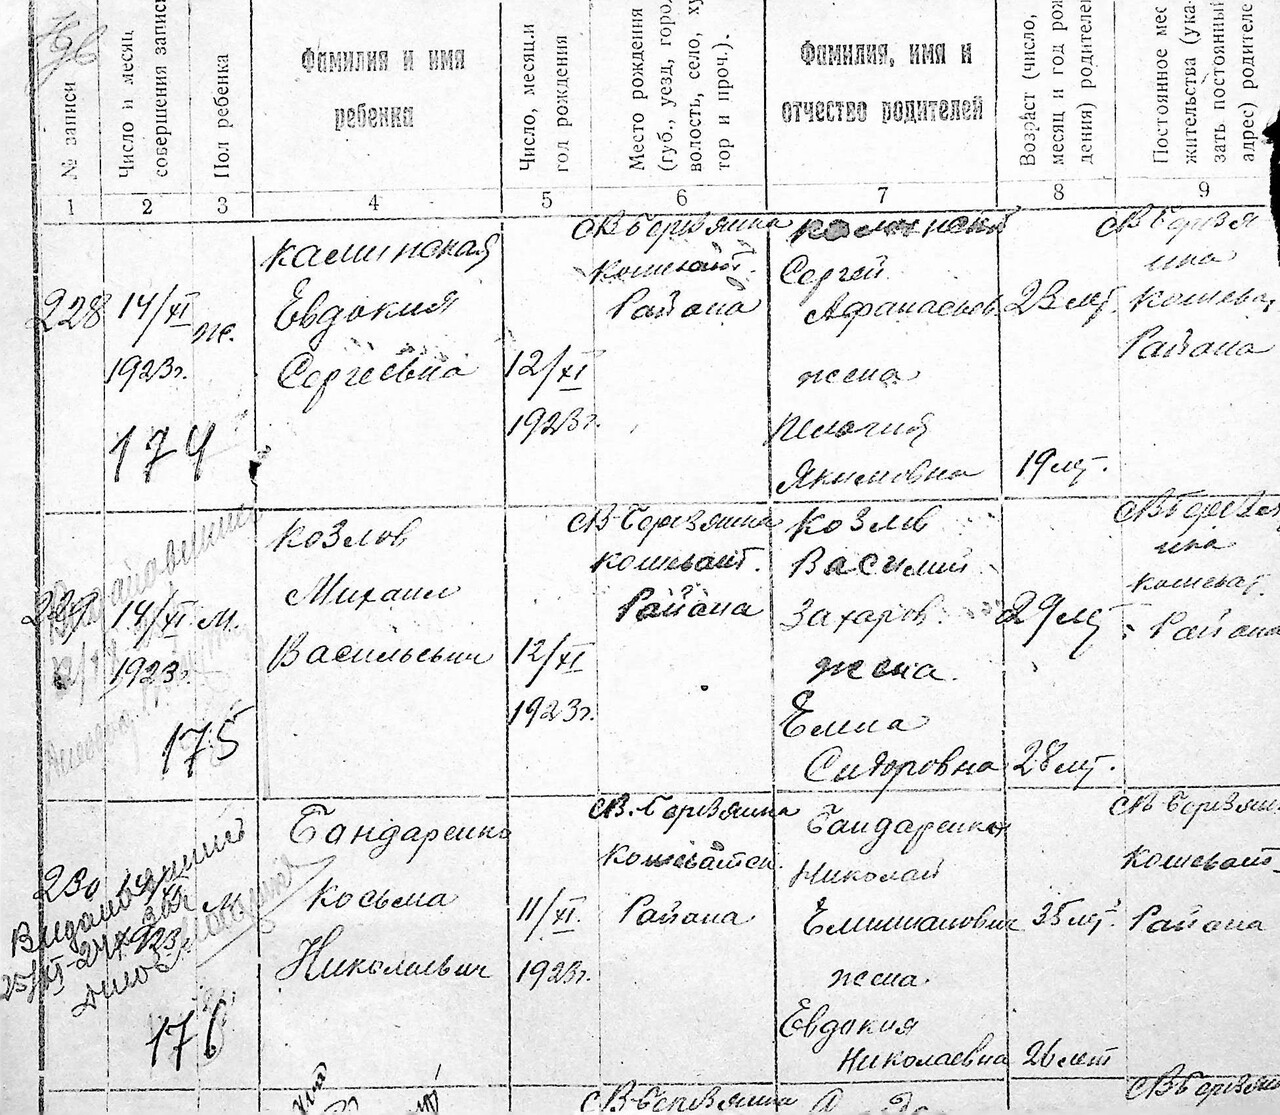 № записи
Число и месяц
совершения записи
Пол ребенка
Фамилия и имя
ребенка
Число, месяц и
год рождения
Место рождения
(губ., уезд, город,
волость, село, ху-
тор и проч.).
Фамилия, имя и
отчество родителей
Возраст (число,
месяц и год рож
дения) родителей
Постоянное мес
жительства (ука-
зать постоянный
адрес) родителе
1 2 3 4 5 6 7 8 9
228
14/XI
1923г.
174
ж.
Каминская
Евдокия
Сергеевна
12/XI
1923г.
СВ Березянка
Кошеват.
Района
Каминский
Сергей
Афанасьев
жена
Пелагия
Якимовна
23 лет.
19 лет.
СВ Березя
нка
Кошеват
Района
229
14/XI
1923г.
175
м.
Козлов
Михаил
Васильевич
12/XI
1923г.
СВ-Березянка
Кошеват.
Района
Козлов
Василий
Захаров.
жена.
Елена
Сидоровна
29 лет
28 лет.
СВ Березян
нка
Кошеват.
Района
230
176
м.
Бондаренко
Косьма
Николаевич
11/XI.
1923г.
СВ. Березянка
Кошеватск.
Района
Бондаренко
Николай
Емильянович
жена
Евдокия
Николаевна
35 лет.
26 лет
СВ Березян
Кошеват.
Района
СВ-Березянка
СВ Березян